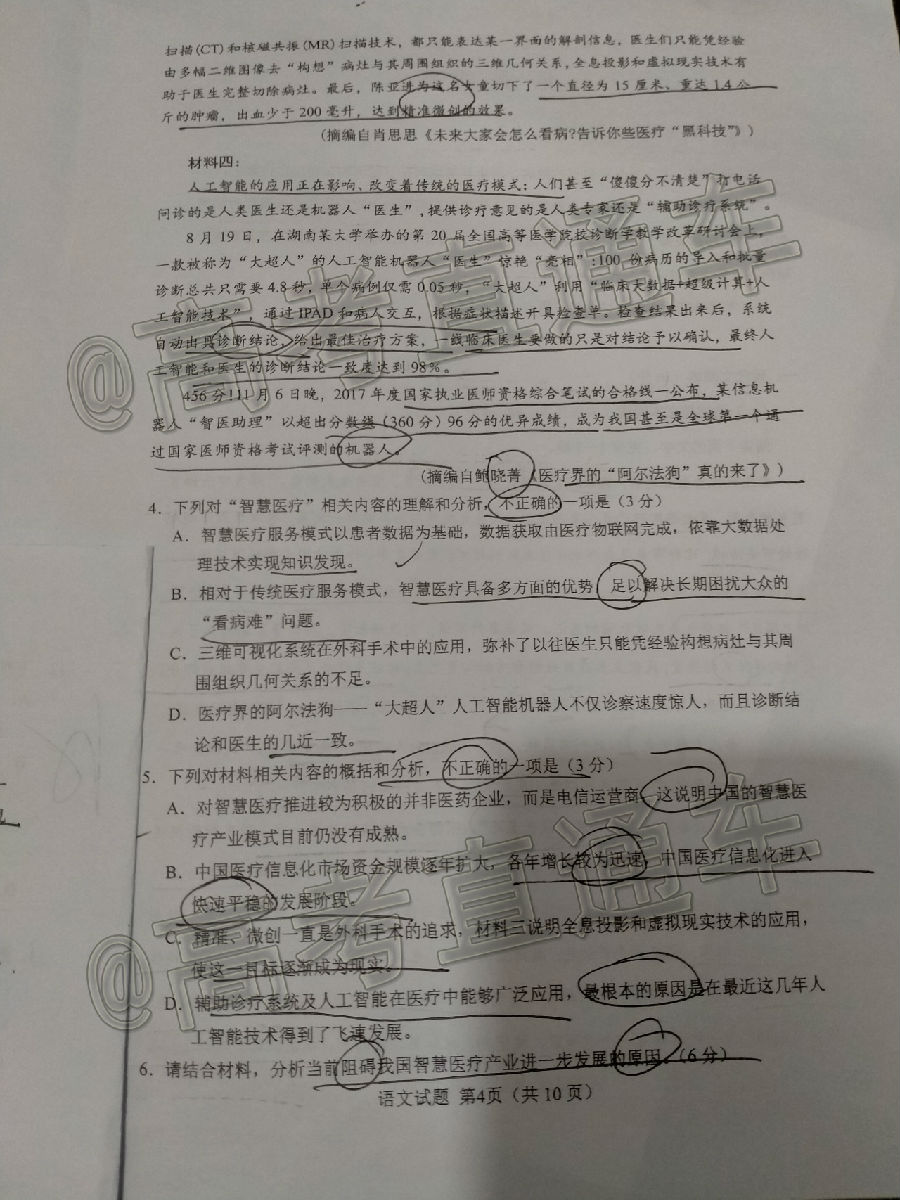 扫描(CT)和核磁共振(MR)扫描技术，都只能表达某一界面的解剖信息，医生们只能凭经验
由多幅二维图像去“构想”病灶与其周围组织的三维几何关系，全息投影和虚拟现实技术有
助于医生完整切除病灶。最后，陈亚进为这名女童切下了一个直径为 15 厘米、重达 1.4 公
斤的肿瘤，出血少于 200 毫升，达到精准微创的效果。
（摘编自肖思思《未来大家会怎么看病?告诉你些医疗“黑科技”》）
材料四：
人工智能的应用正在影响、改变着传统的医疗模式：人们甚至“傻傻分不清楚”打电话
问诊的是人类医生还是机器人“医生”，提供诊疗意见的是人类专家还是“辅助诊疗系统”。
8 月 19 日，在湖南某大学举办的第 20 届全国高等医学院校诊断学教学改革研讨会上，
一款被称为“大超人”的人工智能机器人“医生”惊艳“亮相”：100 份病历的导入和批量
诊断总共只需要 4.8 秒，单个病例仅需 0.05 秒，“大超人”利用“临床大数据+超级计算+人
工智能技术”，通过 IPAD 和病人交互，根据症状描述开具检查单。检查结果出来后，系统
自动出具诊断结论，给出最佳治疗方案，一线临床医生要做的只是对结论予以确认，最终人
工智能和医生的诊断结论一致度达到 98%。
456 分!11 月 6 日晚，2017 年度国家执业医师资格综合笔试的合格线一公布，某信息机
器人“智医助理”以超出分数线（360 分）96 分的优异成绩，成为我国甚至是全球第一个通
过国家医师资格考试评测的机器人。
（摘编自鲍晓菁《医疗界的“阿尔法狗”真的来了》）
4．下列对“智慧医疗”相关内容的理解和分析，不正确的一项是（3 分）
A．智慧医疗服务模式以患者数据为基础，数据获取由医疗物联网完成，依靠大数据处
理技术实现知识发现。
B．相对于传统医疗服务模式，智慧医疗具备多方面的优势，足以解决长期困扰大众的
“看病难”问题。
C．三维可视化系统在外科手术中的应用，弥补了以往医生只能凭经验构想病灶与其周
围组织几何关系的不足。
D．医疗界的阿尔法狗——“大超人”人工智能机器人不仅诊察速度惊人，而且诊断结
论和医生的几近一致。
5．下列对材料相关内容的概括和分析，不正确的一项是（3 分）
A．对智慧医疗推进较为积极的并非医药企业，而是电信运营商，这说明中国的智慧医
疗产业模式目前仍没有成熟。
B．中国医疗信息化市场资金规模逐年扩大，各年增长较为迅速，中国医疗信息化进入
快速平稳的发展阶段。
C．精准、微创一直是外科手术的追求，材料三说明全息投影和虚拟现实技术的应用，
使这一目标逐渐成为现实。
D．辅助诊疗系统及人工智能在医疗中能够广泛应用，最根本的原因是在最近这几年人
工智能技术得到了飞速发展。
6．请结合材料，分析当前阻碍我国智慧医疗产业进一步发展的原因。（6 分）
语文试题 第4页（共 10 页）
@高考直通车
@高考直通车